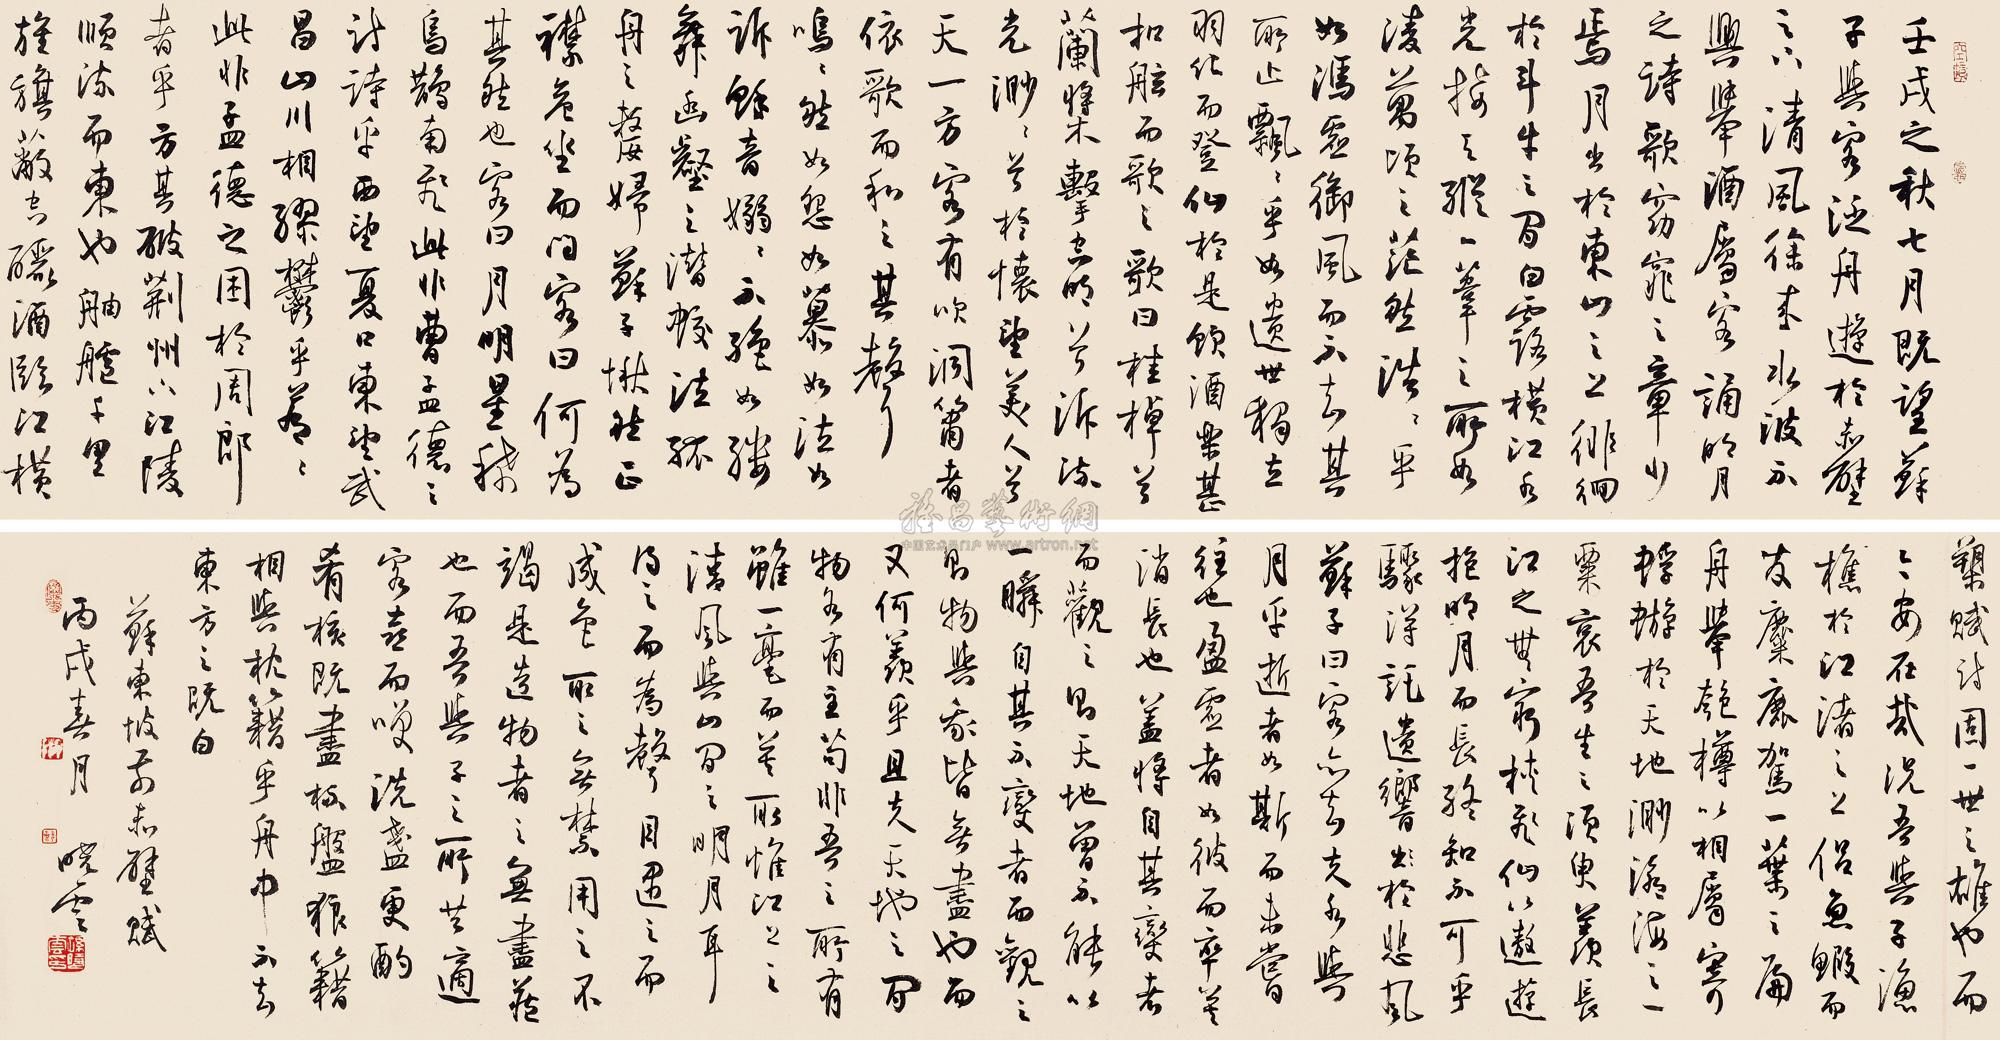 壬戌之秋七月既望蘇
子與客泛舟遊於赤壁
之下清風徐來水波不
興舉酒屬客誦明月
之詩歌窈窕之章少
焉月出於東山之上徘徊
於斗牛之間白露橫江水
光接天縱一葦之所如
淩萬頃之茫然浩浩乎
如馮虛御風而不知其
所止飄飄乎如遺世獨立
羽化而登仙於是飲酒樂甚
扣舷而歌之歌曰桂棹兮
蘭槳擊空明兮泝流
光渺渺兮於懷望美人兮
天一方客有吹洞簫者
依歌而和之其聲
嗚嗚然如怨如慕如泣如
訴餘音嫋嫋不絕如縷
舞幽壑之潛蛟泣孤
舟之嫠婦蘇子愀然正
襟危坐而問客曰何為
其然也客曰月明星稀
烏鵲南飛此非曹孟德之
詩乎西望夏口東望武
昌山川相繆鬱乎蒼蒼
此非孟德之困於周郎
者乎方其破荊州下江陵
順流而東也舳艫千里
旌旗蔽空釃酒臨江橫
槊賦詩固一世之雄也而
今安在哉況吾與子漁
樵於江渚之上侶魚蝦而
友麋鹿駕一葉之扁
舟舉匏樽以相屬寄
蜉蝣於天地渺滄海之一
粟哀吾生之須臾羨長
江之無窮挾飛仙以遨遊
抱明月而長終知不可乎
驟得託遺響於悲風
蘇子曰客亦知夫水與
月乎逝者如斯而未嘗
往也盈虛者如彼而卒莫
消長也蓋將自其變者
而觀之則天地曾不能以
一瞬自其不變者而觀之
則物與我皆無盡也而
又何羨乎且夫天地之間
物各有主苟非吾之所有
雖一毫而莫取惟江上之
清風與山間之明月耳
得之而為聲目遇之而
成色取之無禁用之不
竭是造物者之無盡藏
也而吾與子之所共適
客喜而笑洗盞更酌
肴核既盡杯盤狼籍
相與枕籍乎舟中不知
東方之既白
蘇東坡前赤壁賦
丙戌春月
曉雲